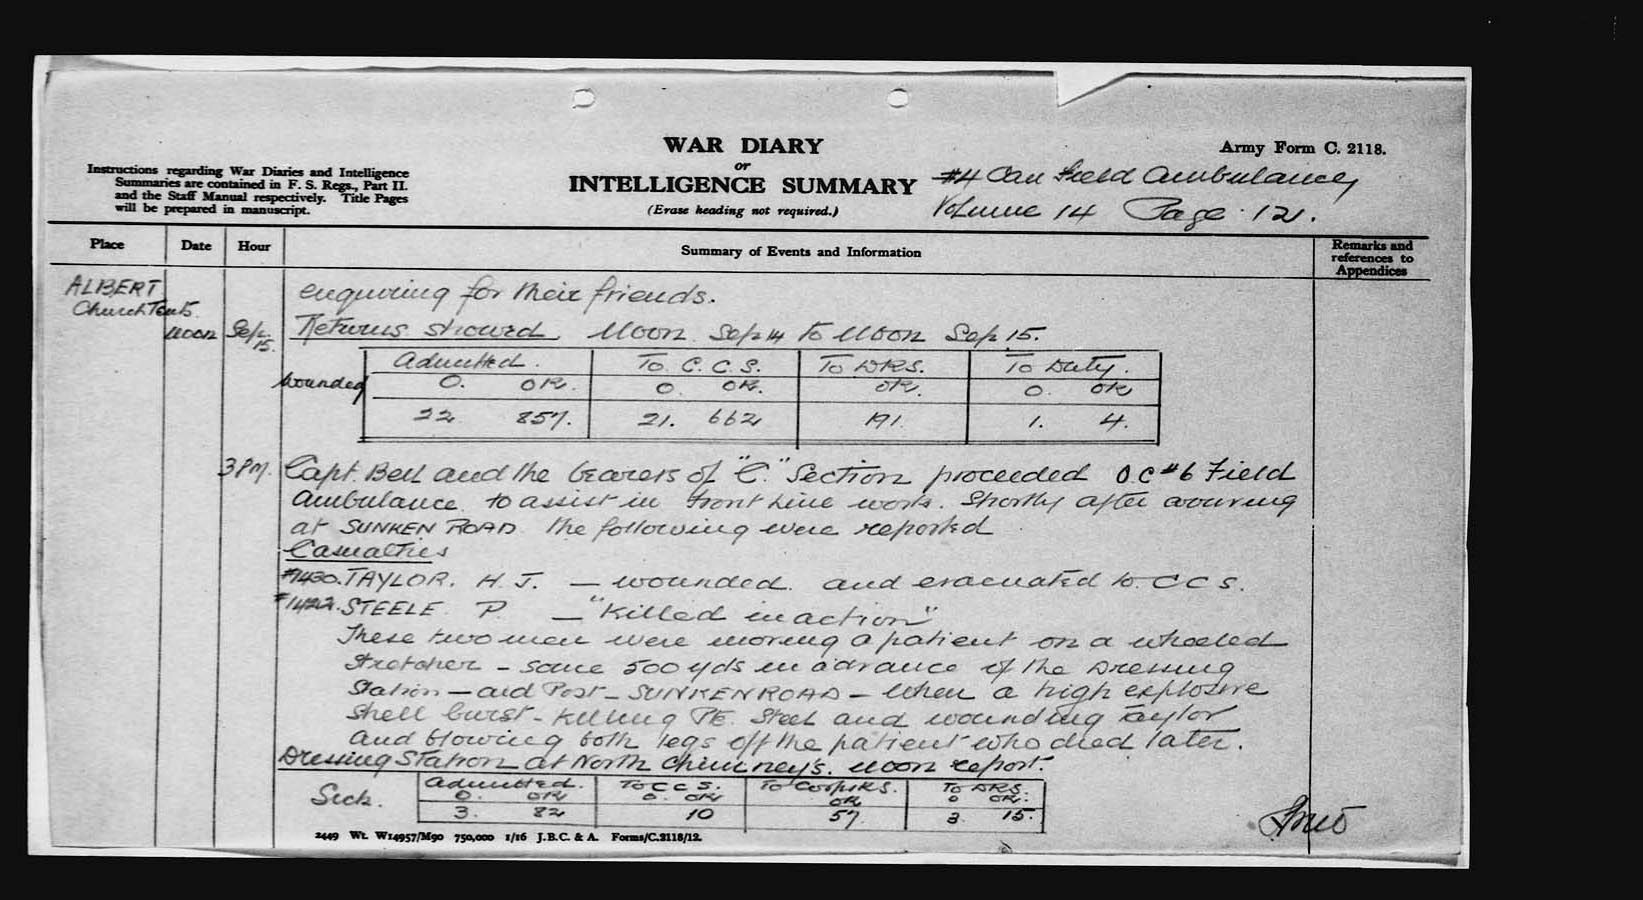 WAR DIARY
or
INTELLIGENCE SUMMARY
(Erase heading not required.)
Army Form C. 2118.
#4 Can Field Ambulance
Volume 14 Page 12.
Instructions regarding War Diaries and Intelligence
Summaries are contained in F. S. Regs., Part II.
and the Staff Manual respectively. Title Pages
will be prepared in manuscript.
Place Date Hour Summary of Events and Information Remarks and
references to
Appendices
ALBERT enquiring for their friends.
Church Tents.
Noon Sep. 15. Returns showed Noon Sep 14 to Noon Sep 15.
Admitted. To C.C.S. To DRS. To Duty.
Wounded O. OR. O. OR. OR. O. OR
22 857. 21. 662 191. 1. 4.
3 PM. Capt. Bell and the bearers of "C." Section proceeded OC #6 Field
Ambulance to assist in front Line work. Shortly after arriving
at SUNKEN ROAD the following were reported
Casualties
#1430. TAYLOR. H. J. — wounded and evacuated to CCS.
#1422. STEELE P. — "Killed in action"
These two men were moving a patient on a wheeled
Stretcher – some 500 yds in advance of the Dressing
Station — aid Post – SUNKEN ROAD – when a high explosive
shell burst – killing PTE. Steel and wounding Taylor
and blowing both legs off the patient who died later.
Dressing Station at North Chimney's. Noon report.
Admitted. To CCS. To Corps RS. To DRS.
Sick. O. OR O. OR OR O OR.
3. 82 10 57 3. 15.
2449 Wt. W14957/M90 750,000 1/16 J.B.C. & A. Forms/C.2118/12.